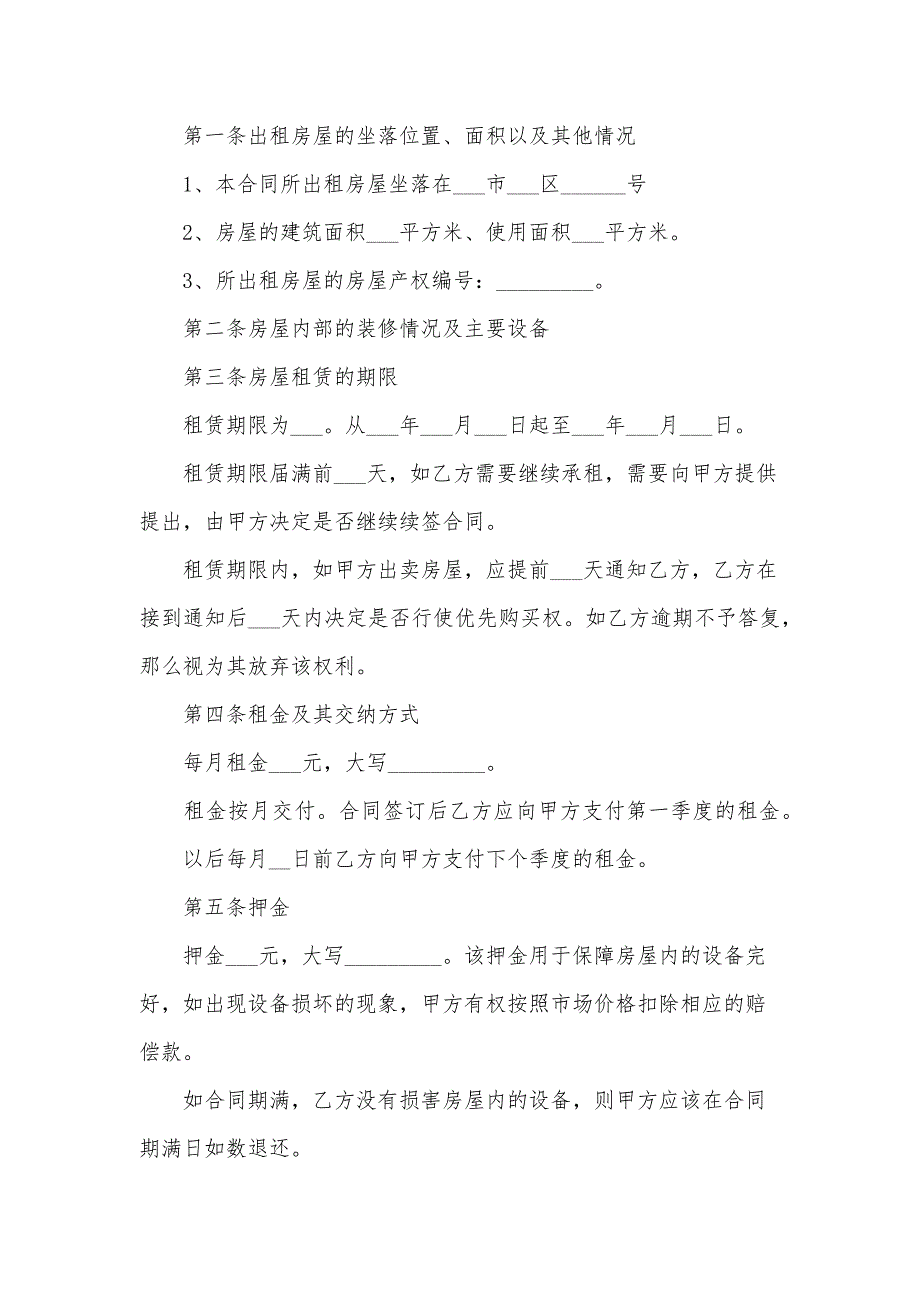 第一条出租房屋的坐落位置、面积以及其他情况
1、本合同所出租房屋坐落在___市___区______号
2、房屋的建筑面积___平方米、使用面积___平方米。
3、所出租房屋的房屋产权编号：_________。
第二条房屋内部的装修情况及主要设备
第三条房屋租赁的期限
租赁期限为___。从___年___月___日起至___年___月___日。
租赁期限届满前___天，如乙方需要继续承租，需要向甲方提供
提出，由甲方决定是否继续续签合同。
租赁期限内，如甲方出卖房屋，应提前___天通知乙方，乙方在
接到通知后___天内决定是否行使优先购买权。如乙方逾期不予答复，
那么视为其放弃该权利。
第四条租金及其交纳方式
每月租金___元，大写_________。
租金按月交付。合同签订后乙方应向甲方支付第一季度的租金。
以后每月__日前乙方向甲方支付下个季度的租金。
第五条押金
押金___元，大写_________。该押金用于保障房屋内的设备完
好，如出现设备损坏的现象，甲方有权按照市场价格扣除相应的赔
偿款。
如合同期满，乙方没有损害房屋内的设备，则甲方应该在合同
期满日如数退还。